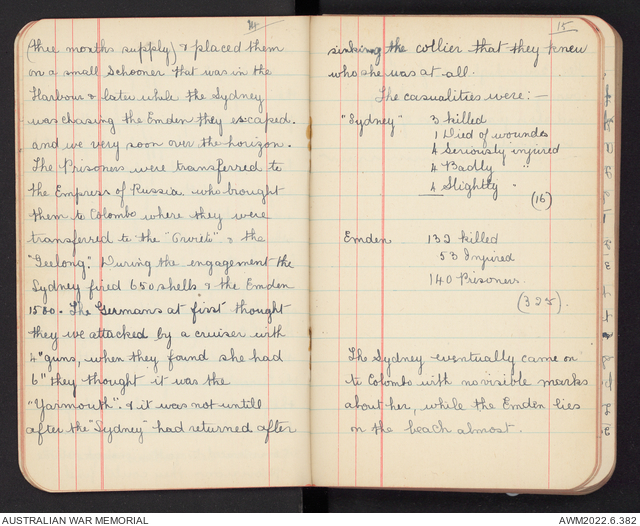 14
(three months supply) & placed them
on a small Schooner that was in the
Harbour & later while the Sydney
was chasing the Emden they escaped.
and we very soon over the horizon.
The Prisoners were transferred to
the Empress of Russia who brought
them to Colombo where they were
transferred to the "Orvieto" & the
"Geelong". During the engagement the
Sydney fired 650 shells & the Emden
1500. The Germans at first thought
they we attacked by a cruiser with
4" guns, when they found she had
6" they thought it was the
"Yarmouth". & it was not untill
after the "Sydney" had returned after
15
sinking the collier that they knew
who she was at all.
The casualities were:—
"Sydney" 3 killed
1 Died of woundes
4 Seriously injured
4 Badly "
4 Slightly "
(16)
Emden 132 killed
53 Injured
140 Prisoners.
(325).
The Sydney eventually came on
to Colombo with no visible marks
about her, while the Emden lies
on the beach almost.
AUSTRALIAN WAR MEMORIAL
AWM2022.6.382